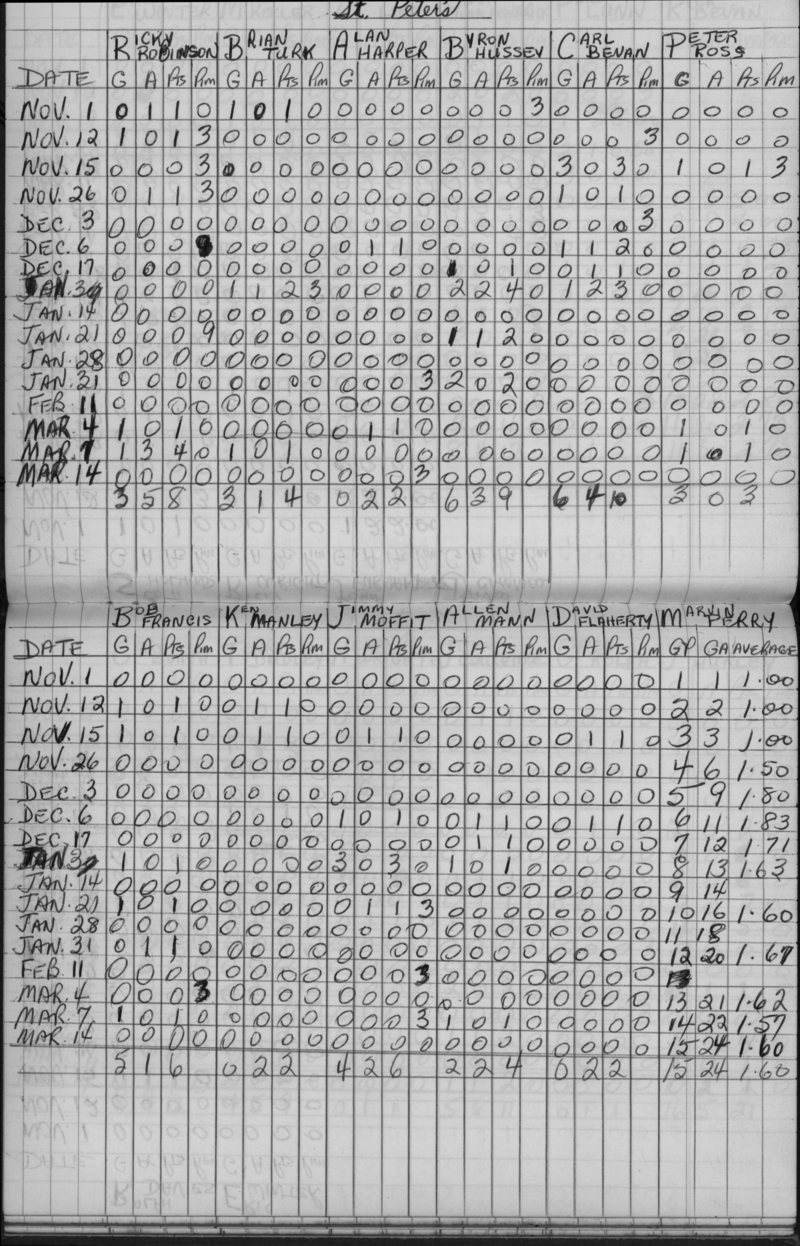 St. Peters
RICKY ROBINSON BRIAN TURK ALAN HARPER BYRON HUSSEY CARL BEVAN PETER ROSS
DATE G A Pts Pim G A Pts Pim G A Pts Pim G A Pts Pim G A Pts Pim G A Pts Pim
NOV. 1 0 1 1 0 1 0 1 0 0 0 0 0 0 0 0 3 0 0 0 0 0 0 0 0
NOV. 12 1 0 1 3 0 0 0 0 0 0 0 0 0 0 0 0 0 0 0 3 0 0 0 0
NOV. 15 0 0 0 3 0 0 0 0 0 0 0 0 0 0 0 0 3 0 3 0 1 0 1 3
NOV. 26 0 1 1 3 0 0 0 0 0 0 0 0 0 0 0 0 1 0 1 0 0 0 0 0
DEC. 3 0 0 0 0 0 0 0 0 0 0 0 0 0 0 0 0 0 0 0 3 0 0 0 0
DEC. 6 0 0 0 0 0 0 0 0 1 1 0 0 0 0 0 1 1 2 0 0 0 0 0
DEC. 17 0 0 0 0 0 0 0 0 0 0 0 0 1 0 1 0 0 1 1 0 0 0 0 0
JAN. 0 0 0 0 1 1 2 3 0 0 0 0 2 2 4 0 1 2 3 0 0 0 0 0
JAN. 14 0 0 0 0 0 0 0 0 0 0 0 0 0 0 0 0 0 0 0 0 0 0 0 0
JAN. 21 0 0 0 9 0 0 0 0 0 0 0 0 1 1 2 0 0 0 0 0 0 0 0 0
JAN. 28 0 0 0 0 0 0 0 0 0 0 0 0 0 0 0 0 0 0 0 0 0 0 0 0
JAN. 31 0 0 0 0 0 0 0 0 0 0 0 3 2 0 2 0 0 0 0 0 0 0 0 0
FEB 11 0 0 0 0 0 0 0 0 0 0 0 0 0 0 0 0 0 0 0 0 0 0 0 0
MAR. 4 1 0 1 0 0 0 0 0 0 1 1 0 0 0 0 0 0 0 0 0 1 0 1 0
MAR. 7 1 3 4 0 1 0 1 0 0 0 0 0 0 0 0 0 0 0 0 0 1 0 1 0
MAR. 14 0 0 0 0 0 0 0 0 0 0 0 3 0 0 0 0 0 0 0 0 0 0 0 0
3 5 8 3 1 4 0 2 2 6 3 9 6 4 10 3 0 3
BOB FRANCIS KEN MANLEY JIMMY MOFFIT ALLEN MANN DAVID FLAHERTY MARVIN PERRY
DATE G A Pts Pim G A Pts Pim G A Pts Pim G A Pts Pim G A Pts Pim GP GA AVERAGE
NOV. 1 0 0 0 0 0 0 0 0 0 0 0 0 0 0 0 0 0 0 0 0 1 1 1.00
NOV. 12 1 0 1 0 0 1 1 0 0 0 0 0 0 0 0 0 0 0 0 0 2 2 1.00
NOV. 15 1 0 1 0 0 1 1 0 0 1 1 0 0 0 0 0 0 1 1 0 3 3 1.00
NOV. 26 0 0 0 0 0 0 0 0 0 0 0 0 0 0 0 0 0 0 0 0 4 6 1.50
DEC. 3 0 0 0 0 0 0 0 0 0 0 0 0 0 0 0 0 0 0 0 0 5 9 1.80
DEC. 6 0 0 0 0 0 0 0 0 1 0 1 0 0 1 1 0 0 1 1 0 6 11 1.83
DEC. 17 0 0 0 0 0 0 0 0 0 0 0 0 0 1 1 0 0 0 0 0 7 12 1.71
JAN 1 0 1 0 0 0 0 0 3 0 3 0 1 0 1 0 0 0 0 0 8 13 1.63
JAN. 14 0 0 0 0 0 0 0 0 0 0 0 0 0 0 0 0 0 0 0 0 9 14
JAN. 21 1 0 1 0 0 0 0 0 0 1 1 3 0 0 0 0 0 0 0 0 10 16 1.60
JAN. 28 0 0 0 0 0 0 0 0 0 0 0 0 0 0 0 0 0 0 0 0 11 18
JAN. 31 0 1 1 0 0 0 0 0 0 0 0 0 0 0 0 0 0 0 0 0 12 20 1.67
FEB 11 0 0 0 0 0 0 0 0 0 0 0 3 0 0 0 0 0 0 0 0
MAR. 4 0 0 0 3 0 0 0 0 0 0 0 0 0 0 0 0 0 0 0 0 13 21 1.62
MAR. 7 1 0 1 0 0 0 0 0 0 0 0 3 1 0 1 0 0 0 0 0 14 22 1.57
MAR. 14 0 0 0 0 0 0 0 0 0 0 0 0 0 0 0 0 0 0 0 0 15 24 1.60
5 1 6 0 2 2 4 2 6 2 2 4 0 2 2 15 24 1.60